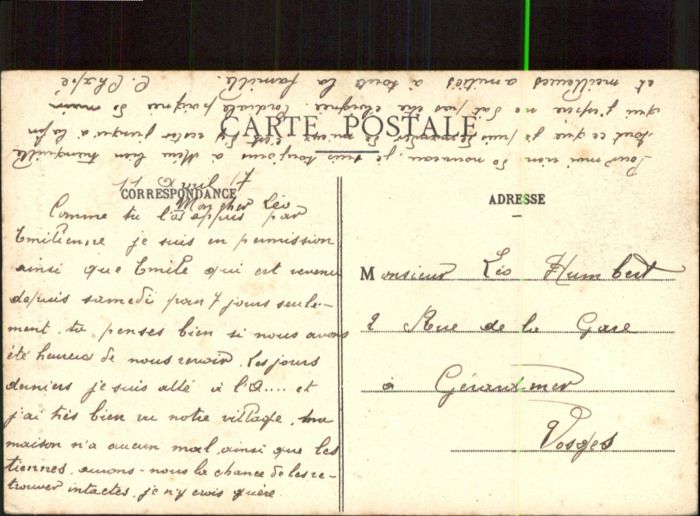 CARTE POSTALE
CORRESPONDANCE
ADRESSE
11 Avril 17
Mon cher Léo
Comme tu l'as appris par
Emilienne je suis en permission
ainsi que Emile qui est revenu
depuis samedi pour 7 jours seule-
ment, tu penses bien si nous avons
été heureux de nous revoir. Les jours
derniers je suis allé à l'O.... et
j'ai très bien vu notre village, ma
maison n'a aucun mal ainsi que les
tiennes, aurons-nous la chance de les re-
trouver intactes, je n'y crois guère.
Pour moi rien de nouveau, je suis toujours à bien tranquille
tout ce que je puis demander c'est d'y rester jusqu'à la fin
qui j'espère ne soit pas être éloignée. Cordiale poignée de main
et meilleures amitiés à toute la famille.
Monsieur Léo Humbert
2 Rue de la Gare
à Gérardmer
Vosges